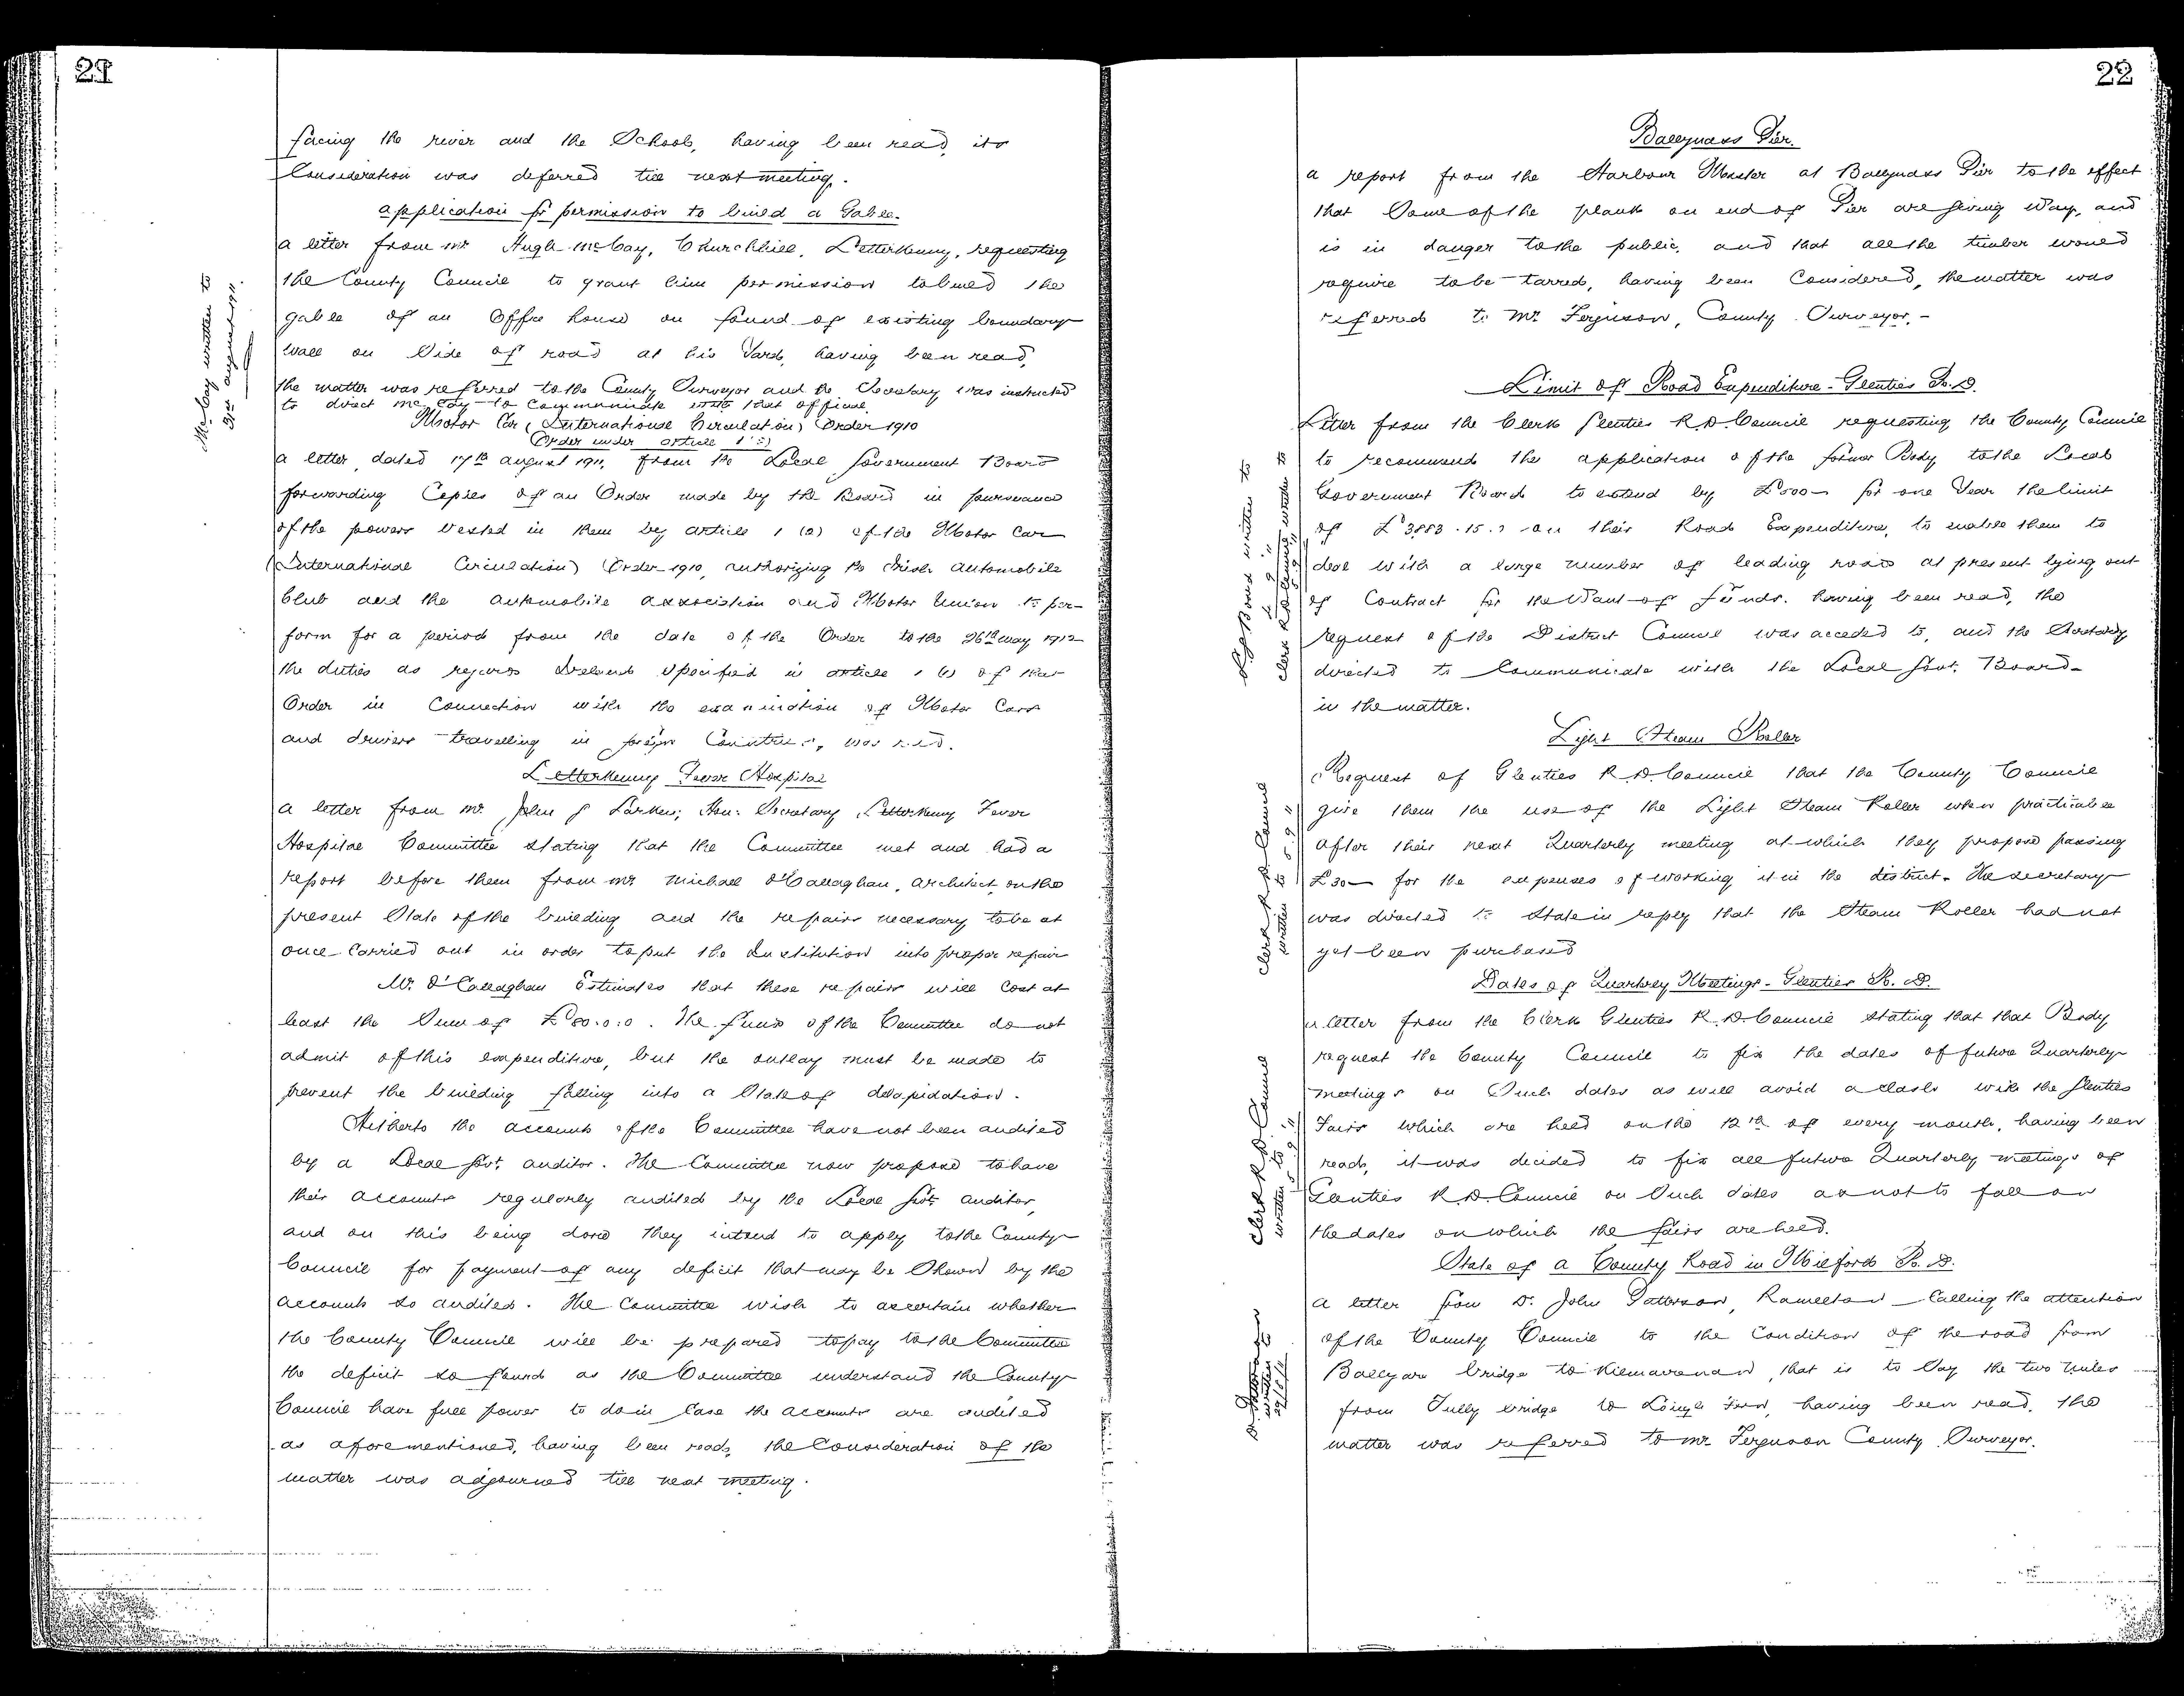 21
facing the river and the School, having been read, its
Consideration was deferred till next meeting.
Application for permission to build a Gable.
A letter from Mr Hugh McCay, Churchhill, Letterkenny, requesting
the County Council to grant him permission to build the
gable of an Office house on found of existing boundary
wall on Side of road at his Yard, having been read,
the matter was referred to the County Surveyor and the Secretary was instructed
to direct McCay to Communicate with that official
McCay written to
31st August 1911.
Motor Car (International Circulation) Order 1910
(Order under Article 1
A letter dated 17th August 1911, from the Local Government Board
forwarding Copies of an Order made by the Board in pursuance
of the powers Vested in them by Article 1 (a) of the Motor Car
(International Circulation) Order 1910, authorizing the Irish Automobile
Club and the Automobile Association and Motor Union to per-
form for a period from the date of the Order to the 26th May 1912
the duties as regards Ireland Specified in Article 1 of that
Order in Connection with the examination of Motor Cars
and drivers travelling in foreign Countries, was read.
Letterkenny Fever Hospital
A letter from Mr. John J Larkin, Hon: Secretary Letterkenny Fever
Hospital Committee stating that the Committee met and had a
report before them from Mr Michael O'Callaghan, Architect, on the
present State of the building and the repairs necessary to be at
once Carried out in order to put the Institution into proper repair
Mr. O'Callaghan Estimates that these repairs will Cost at
least the Sum of £80.0.0. The funds of the Committee do not
admit of this expenditure, but the outlay must be made to
prevent the building falling into a State of delapidation.
Hitherto the accounts of the Committee have not been audited
by a Local Govt. Auditor. The Committee now propose to have
their accounts regularly audited by the Local Govt. Auditor,
and on this being done they intend to apply to the County
Council for payment of any deficit that may be Shown by the
accounts so audited. The Committee wish to ascertain whether
the County Council will be prepared to pay to the Committee
the deficit so found as the Committee understand the County
Council have full power to do in Case the accounts are audited
as aforementioned, having been read, the Consideration of the
matter was adjourned till next meeting.
22
Ballyness Pier.
A report from the Harbour Master at Ballyness Pier to the effect
that Some of the plank on end of Pier are giving Way, and
is in danger to the public, and that all the timber would
require to be tarred, having been Considered, the matter was
referred to Mr Ferguson, County Surveyor.-
Limit of Road Expenditure - Glenties R.D.
Letter from the Clerk Glenties R.D. Council requesting the County Council
to recommend the application of the former Body to the Local
Government Board to extend by £500- for one Year the limit
of £3883.15. on their Road Expenditure, to enable them to
deal with a large number of leading roads at present lying out
of Contract for the Want of funds. having been read, the
request of the District Council was acceded to, and the Secretary
directed to Communicate with the Local Govt. Board
in the matter.
Board written to
Clerk written to
Light Steam Roller
Request of Glenties R.D. Council that the County Council
give them the use of the Light Steam Roller when practicable
after their next Quarterly meeting at which they propose passing
£30- for the expenses of working it in the district. The Secretary
was directed to State in reply that the Steam Roller had not
yet been purchased
Clerk R.D. Council
written to 5.9.11
Dates of Quarterly Meetings - Glenties R.D.
A letter from the Clerk Glenties R.D. Council stating that that Body
request the County Council to fix the dates of future Quarterly
meetings on Such dates as will avoid a clash with the Glenties
Fairs which are held on the 12th of every month, having been
read, it was decided to fix all future Quarterly meetings of
Glenties R.D. Council on Such dates as not to fall on
the dates on which the fairs are held.
Clerk R.D. Council
written
State of a County Road in Milford R.D.
A letter from Dr. John Patterson, Ramelton - Calling the attention
of the County Council to the Condition of the road from
Ballyare bridge to Kilmacrenan, that is to Say the two miles
from Tully bridge to Lough Fern, having been read, the
matter was referred to Mr Ferguson County Surveyor.
Dr. Patterson
written to